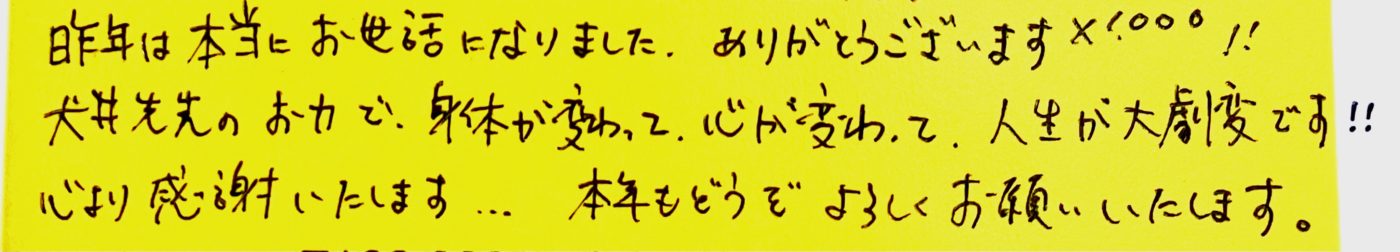 昨年は本当にお世話になりました。ありがとうございます×1000!!
犬井先先のお力で、身体が変わって、心が変わって、人生が大劇変です!!
心より感謝いたします... 本年もどうぞよろしくお願いいたします。